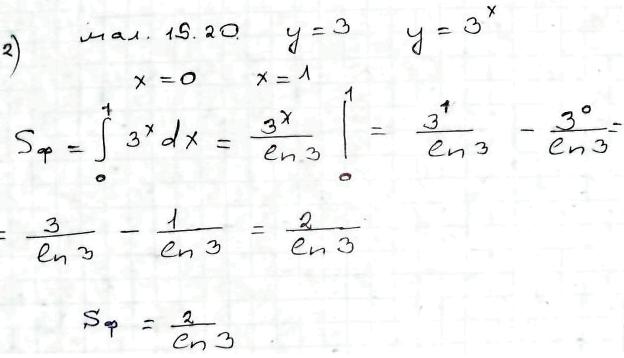 2) мал. 15.20. y = 3 y = 3^x
x = 0 x = 1
Sф = ∫₀¹ 3^x dx = 3^x / ln 3 |₀¹ = 3^1 / ln 3 − 3^0 / ln 3 =
= 3 / ln 3 − 1 / ln 3 = 2 / ln 3
Sф = 2 / ln 3